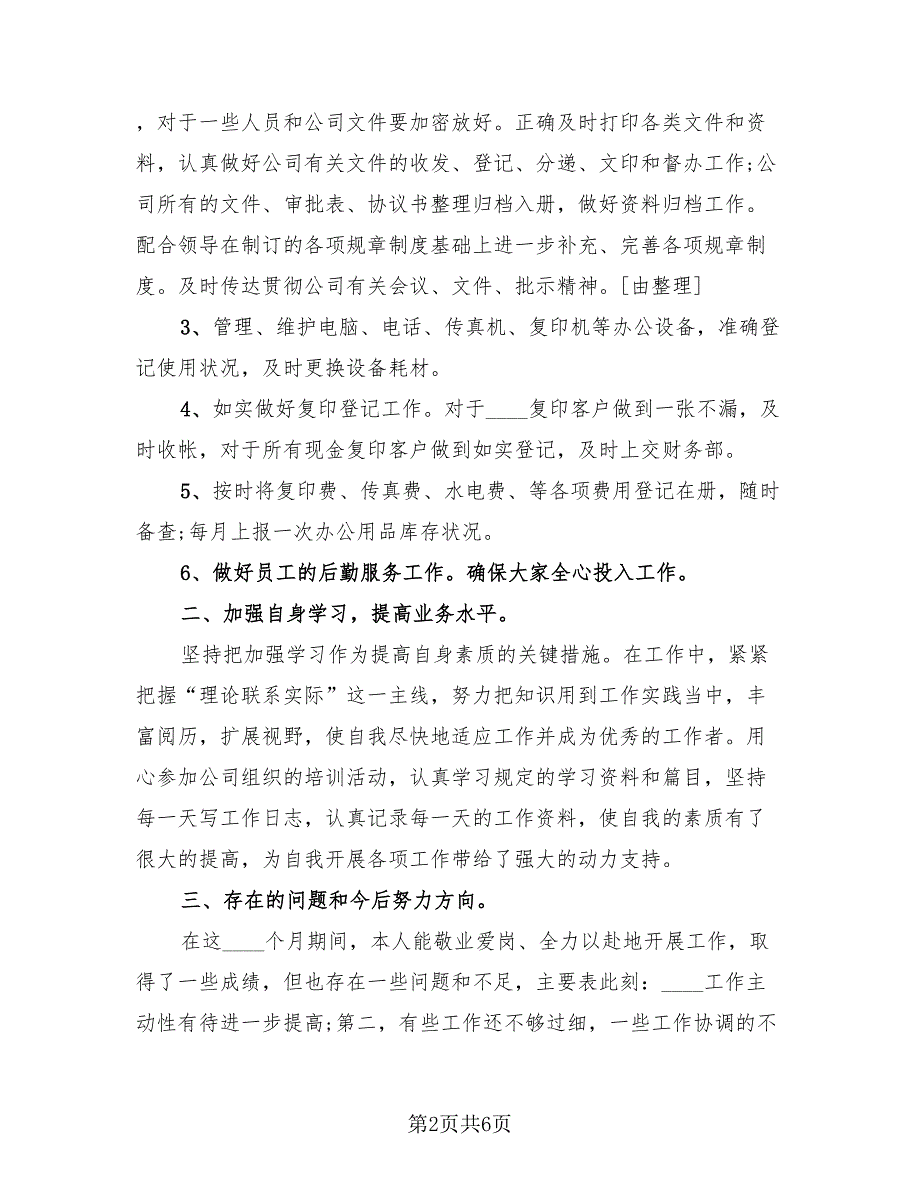 ，对于一些人员和公司文件要加密放好。正确及时打印各类文件和资
料，认真做好公司有关文件的收发、登记、分递、文印和督办工作;公
司所有的文件、审批表、协议书整理归档入册，做好资料归档工作。
配合领导在制订的各项规章制度基础上进一步补充、完善各项规章制
度。及时传达贯彻公司有关会议、文件、批示精神。[由整理]
3、管理、维护电脑、电话、传真机、复印机等办公设备，准确登
记使用状况，及时更换设备耗材。
4、如实做好复印登记工作。对于____复印客户做到一张不漏，及
时收帐，对于所有现金复印客户做到如实登记，及时上交财务部。
5、按时将复印费、传真费、水电费、等各项费用登记在册，随时
备查;每月上报一次办公用品库存状况。
6、做好员工的后勤服务工作。确保大家全心投入工作。
二、加强自身学习，提高业务水平。
坚持把加强学习作为提高自身素质的关键措施。在工作中，紧紧
把握“理论联系实际”这一主线，努力把知识用到工作实践当中，丰
富阅历，扩展视野，使自我尽快地适应工作并成为优秀的工作者。用
心参加公司组织的培训活动，认真学习规定的学习资料和篇目，坚持
每一天写工作日志，认真记录每一天的工作资料，使自我的素质有了
很大的提高，为自我开展各项工作带给了强大的动力支持。
三、存在的问题和今后努力方向。
在这____个月期间，本人能敬业爱岗、全力以赴地开展工作，取
得了一些成绩，但也存在一些问题和不足，主要表此刻：____工作主
动性有待进一步提高;第二，有些工作还不够过细，一些工作协调的不
第2页共6页